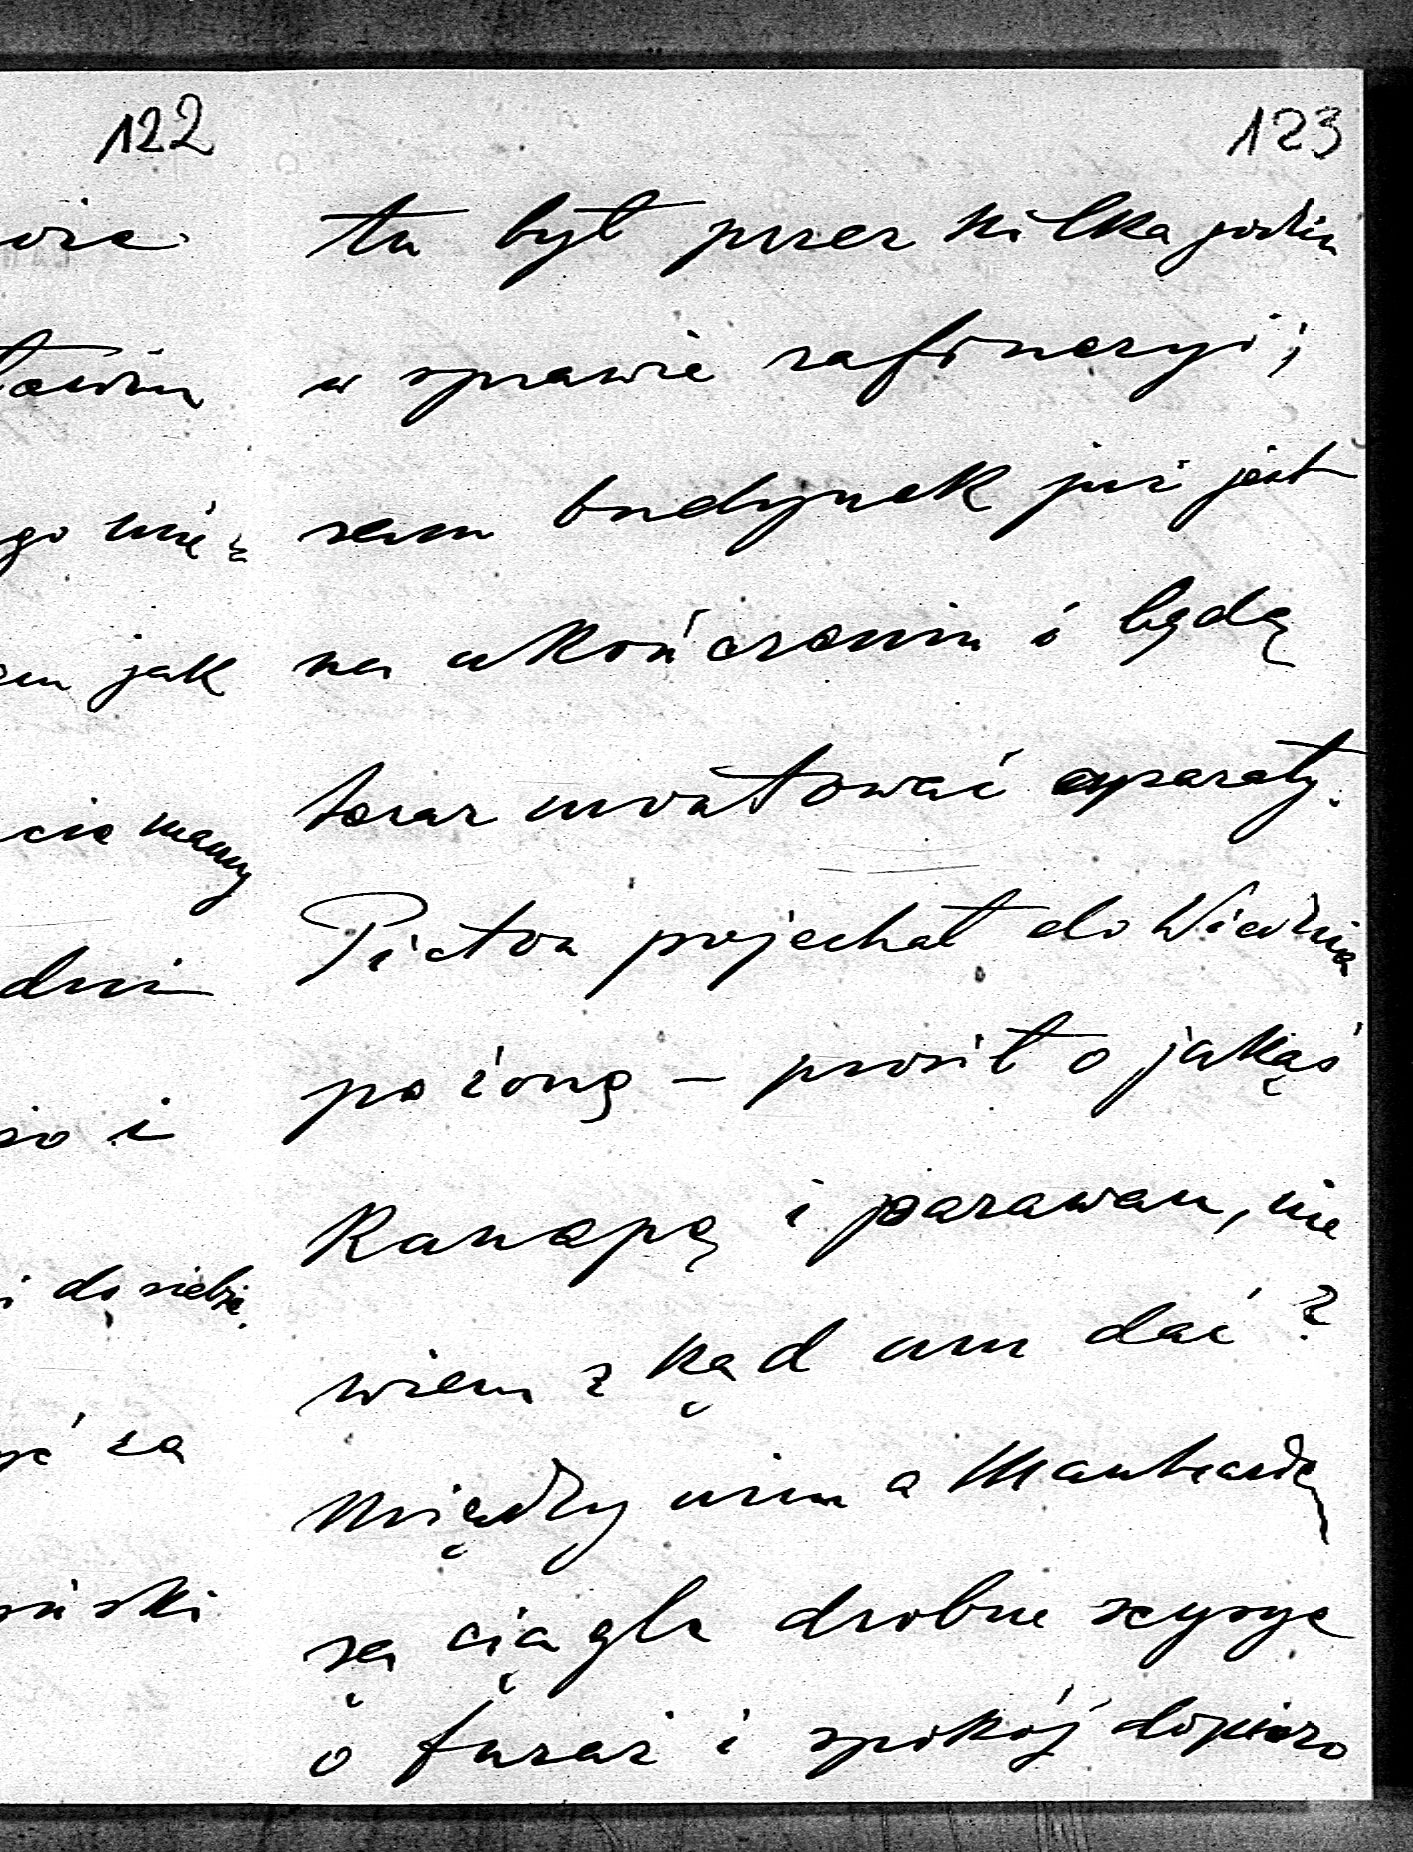 122
go nie=
jak
cie mamy
dni
i
i do siebie.
za
123
tu był przez kilka godzin
w sprawie rafineryi;
sam budynek już jest
na ukończeniu i będą
teraz montować aparaty.
Picton pojechał do Wiednia
po żonę – prosił o jakąś
Kanapę i parawan, nie
wiem zkąd mu dać?
Między nim a
są ciągle drobne scysye
o furaż i spokój dopiero